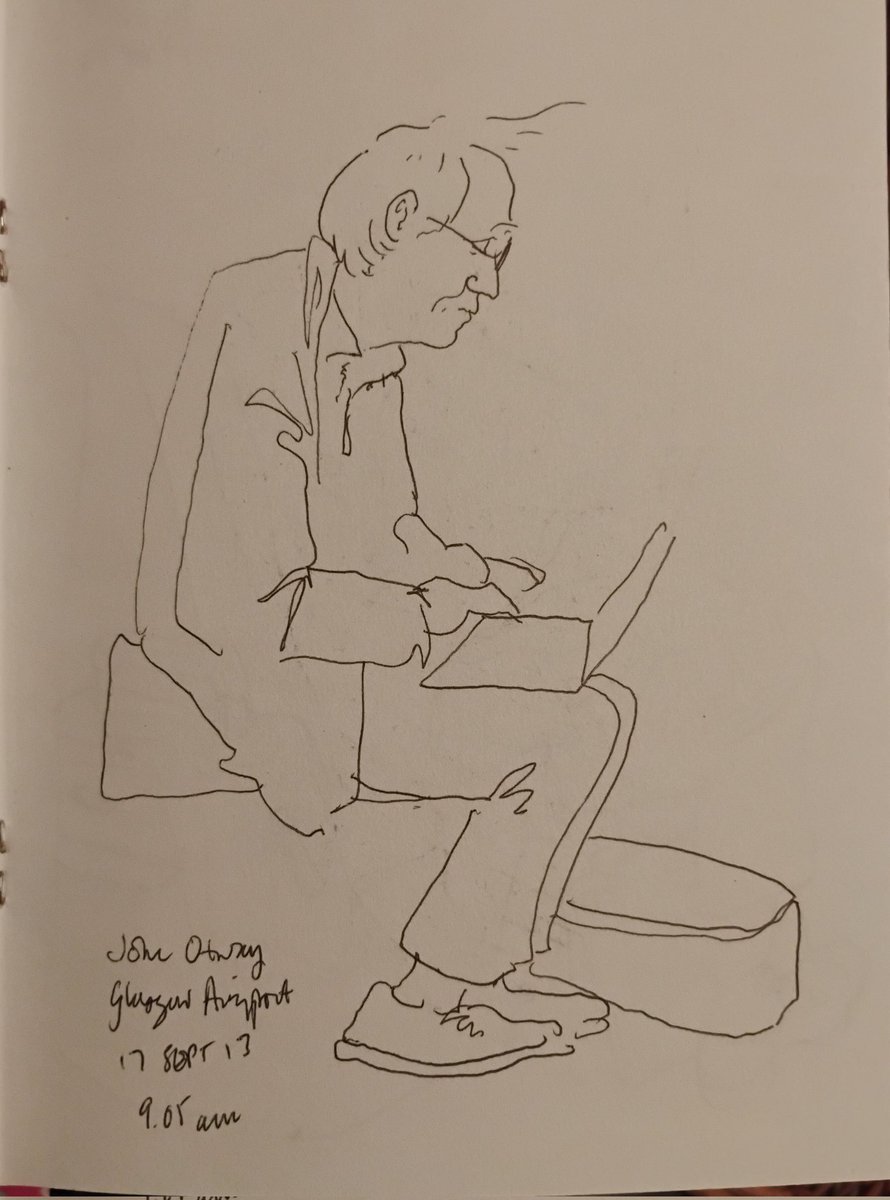 John Otway
Glasgow Airport
17 SEPT 13
9.05 am